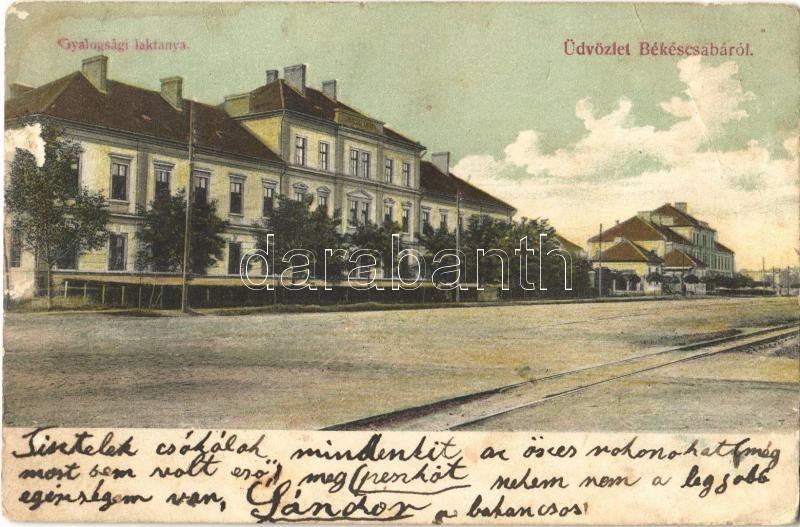 Gyalogsági laktanya.
Üdvözlet Békéscsabáról.
darabanth.com
Tisztelek csókálok mindenkit az ösces rokonokat (még
most sem volt eső) meg (peszkót nekem nem a legjobb
egésségem van, Sándor a bakancsos